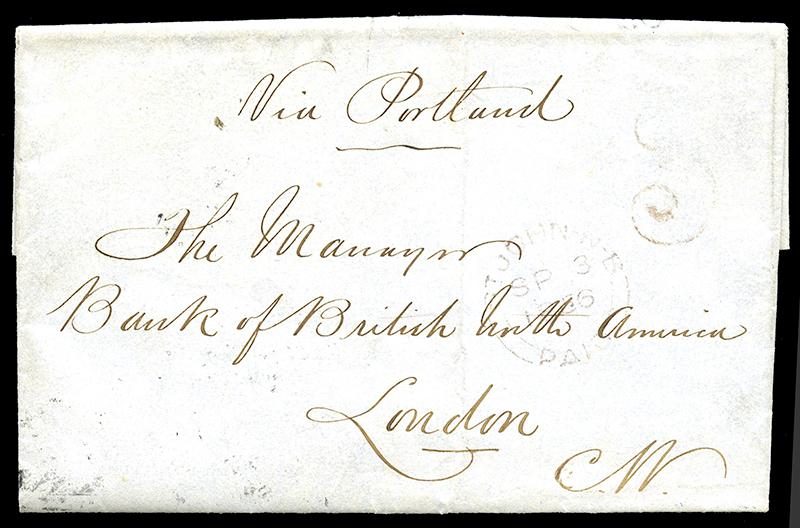 Via Portland
The Manager
Bank of British North America
London
C.W.
ST JOHN·N·B
SP 3
PAI